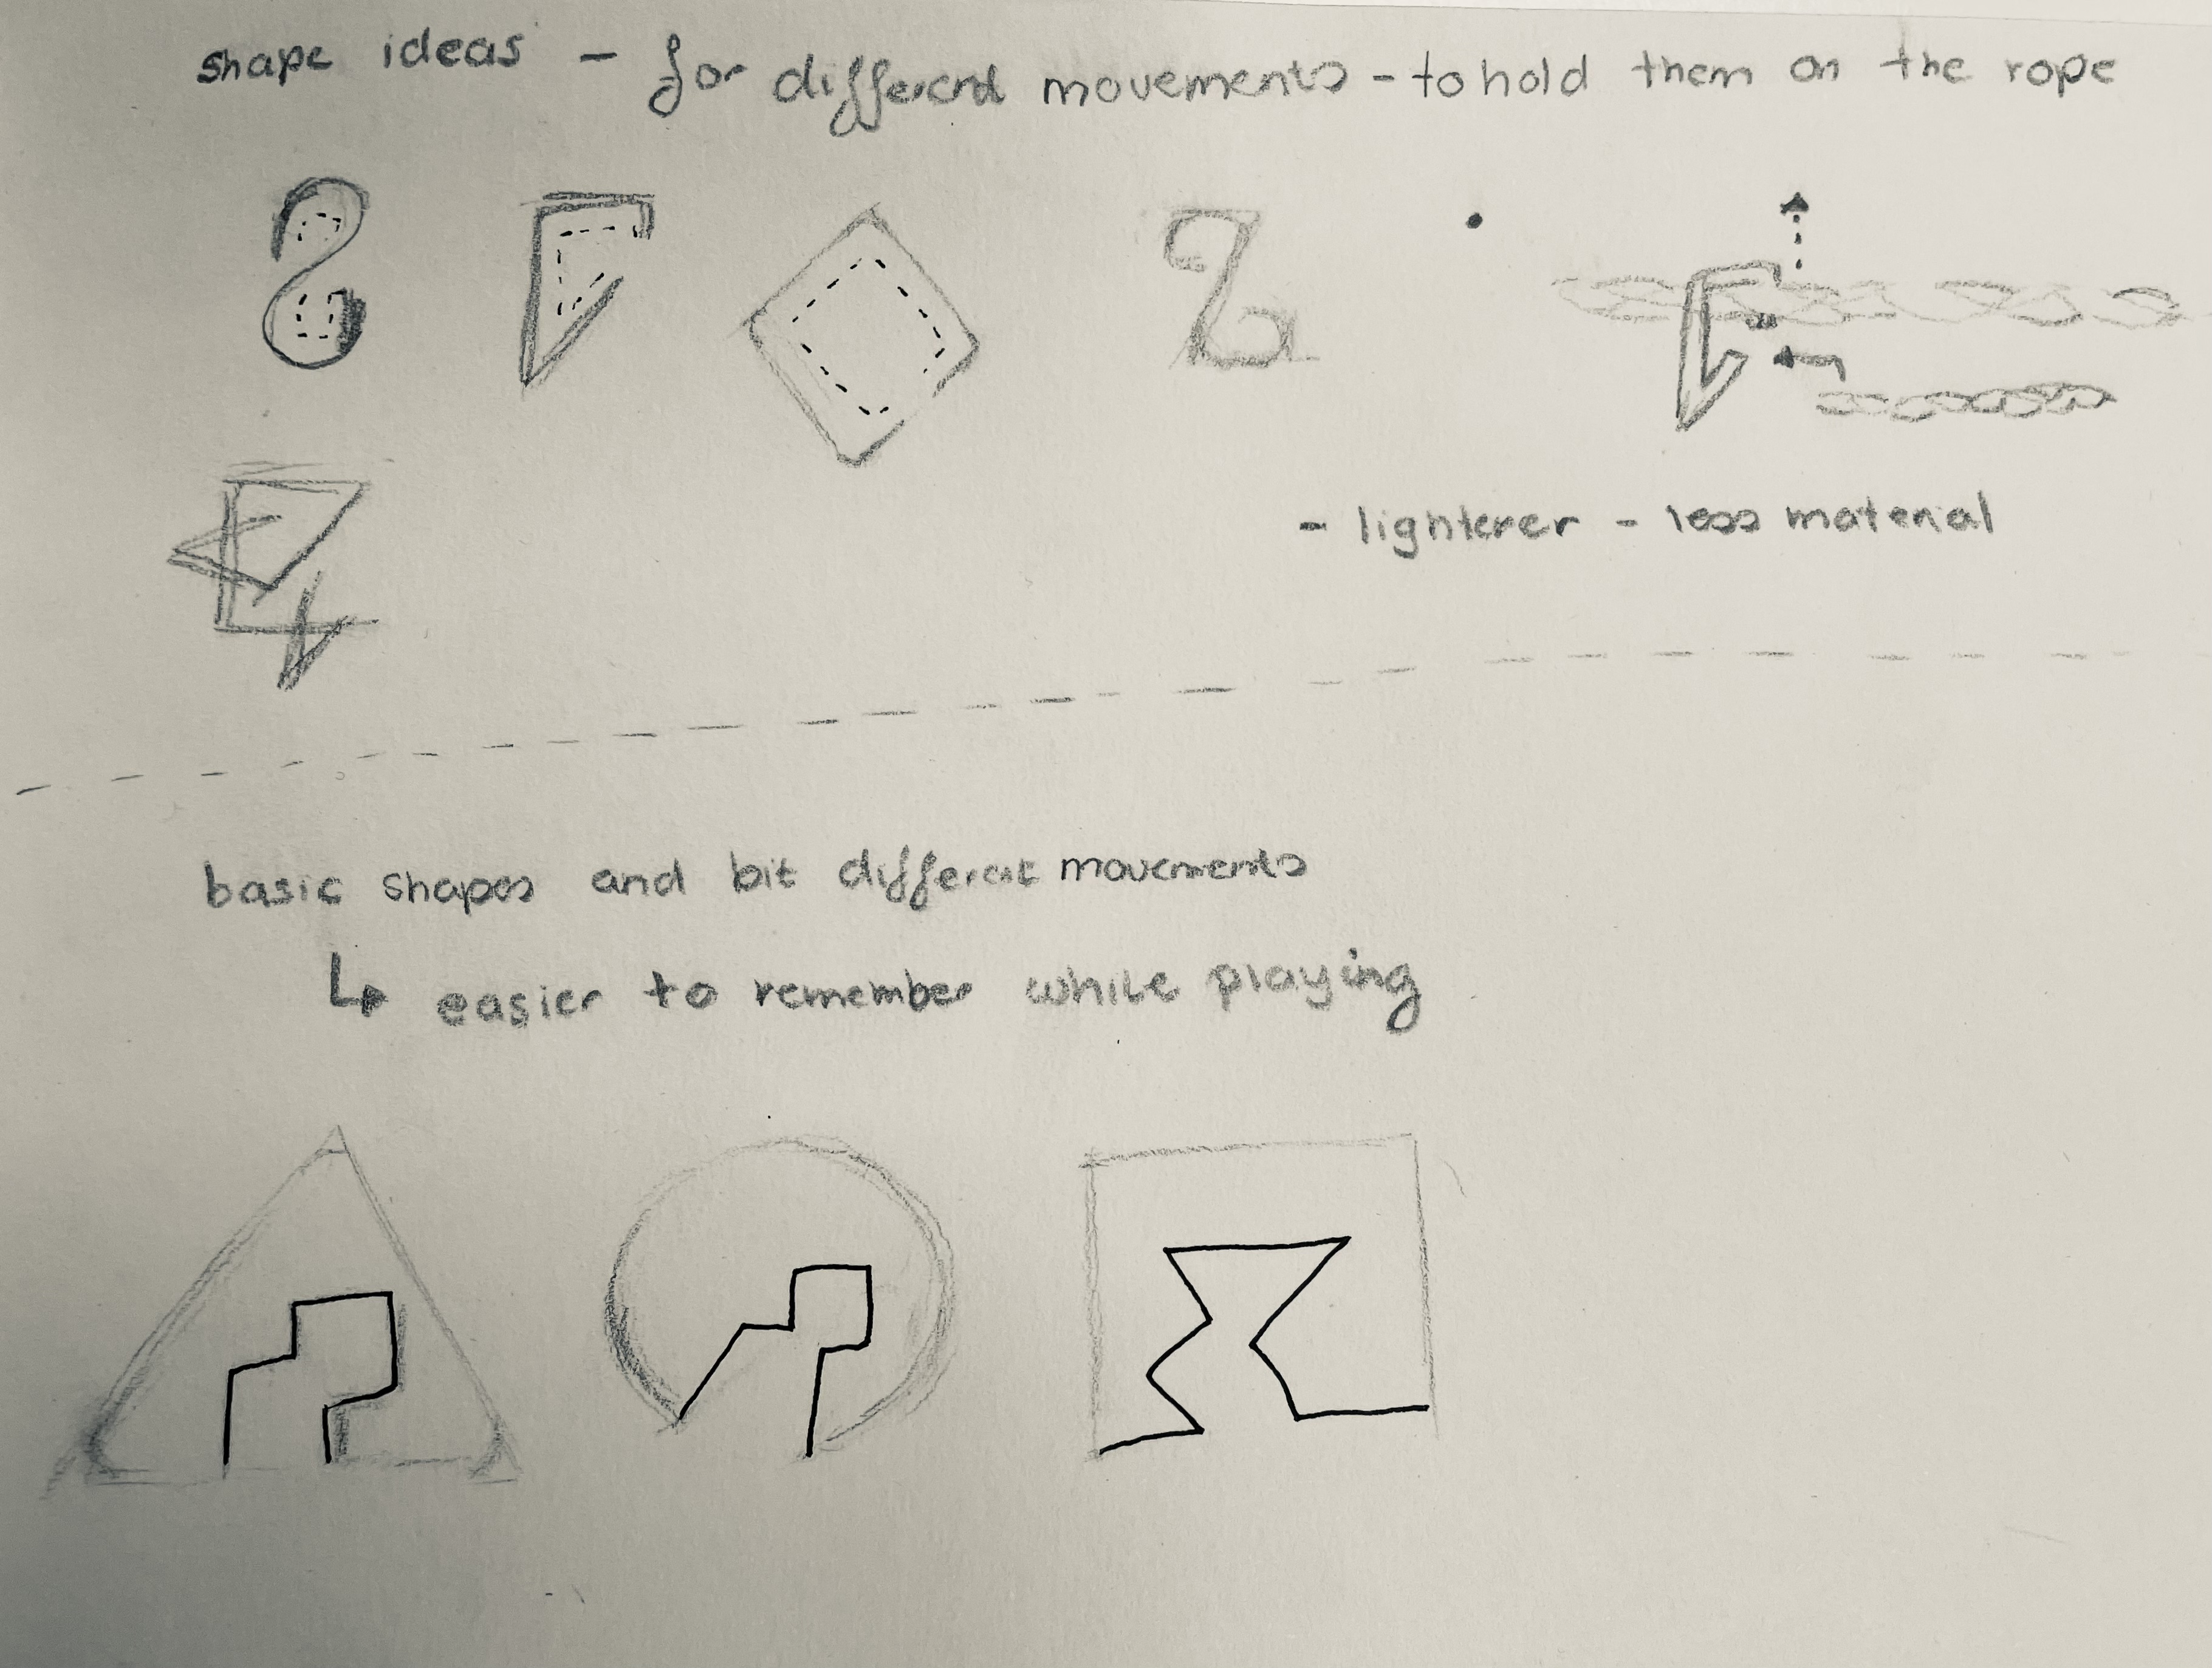 shape ideas - for different movements - to hold them on the rope
- lighterer - less material
basic shapes and bit different movements
↳ easier to remember while playing